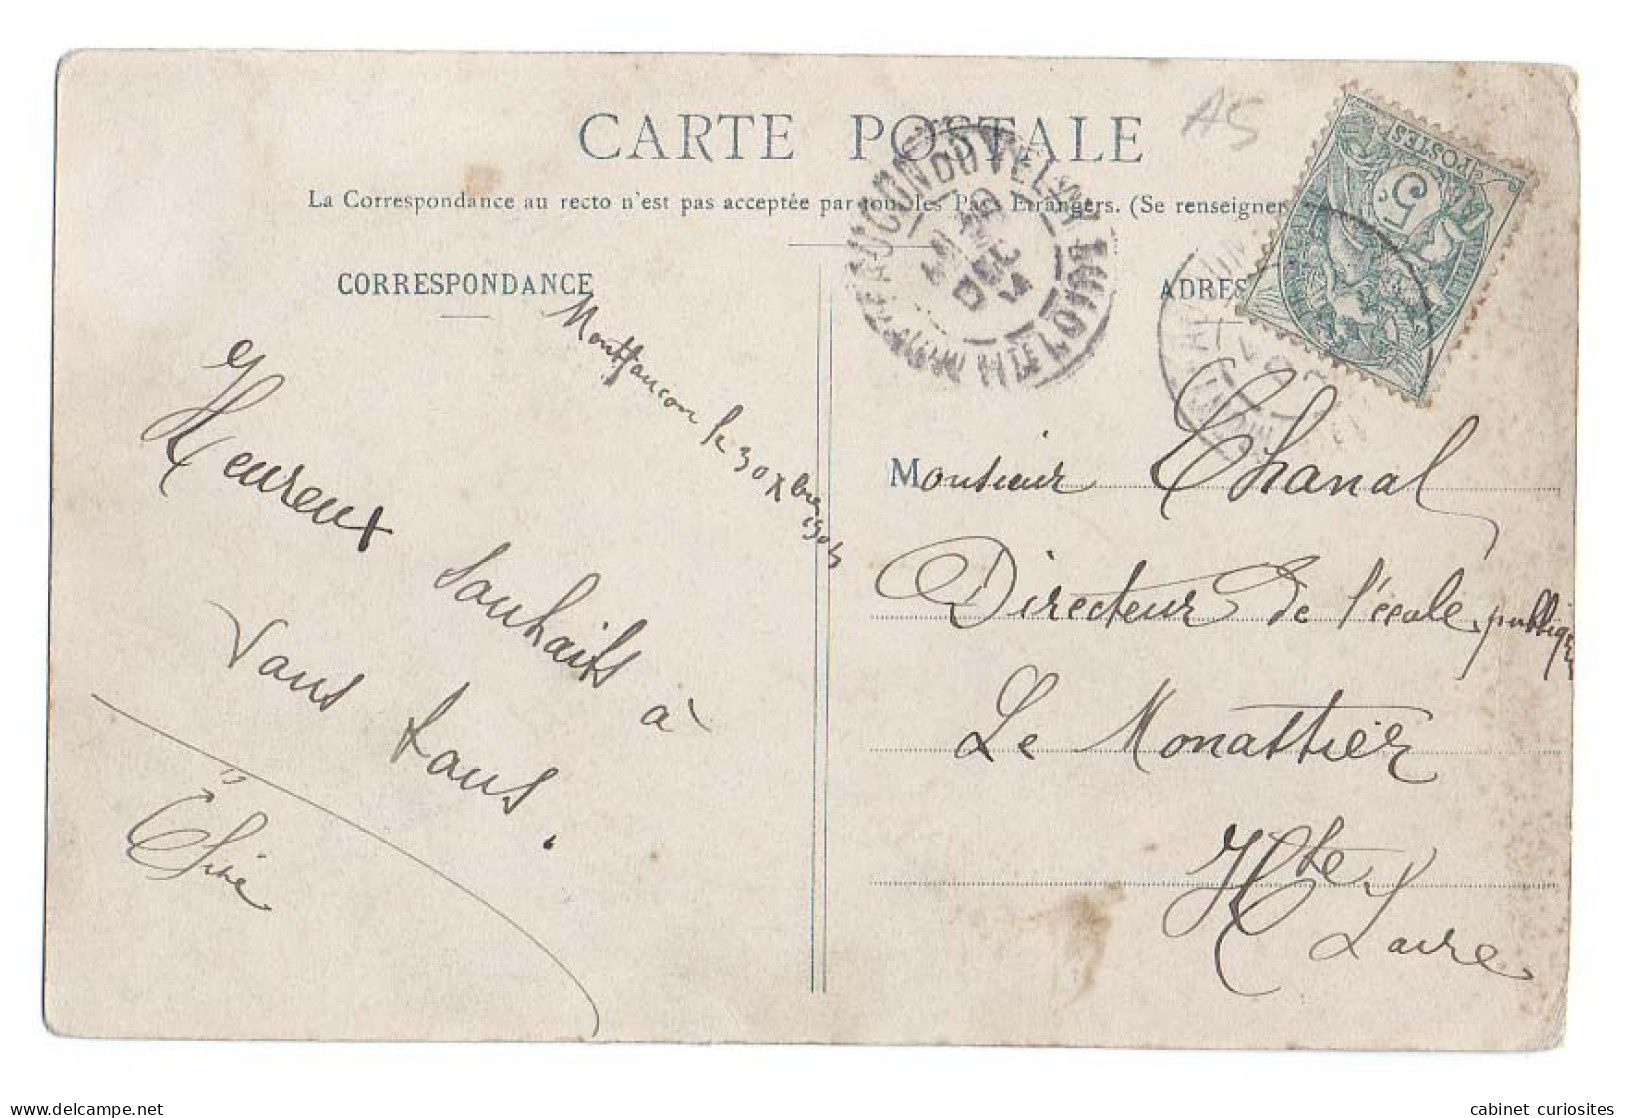 CARTE POSTALE
AS
La Correspondance au recto n'est pas acceptée par tous les Pays Etrangers. (Se renseigner
CORRESPONDANCE
ADRES
POSTES
5 c
MONTFAUCON DU VELAY
HTE LOIRE
DEC
Montfaucon le 30 Xbre 1904
Heureux
souhaits à
vous tous.
Monsieur Chanal
Directeur de l'école publique
Le Monattier
Hte Loire
cabinet curiosites